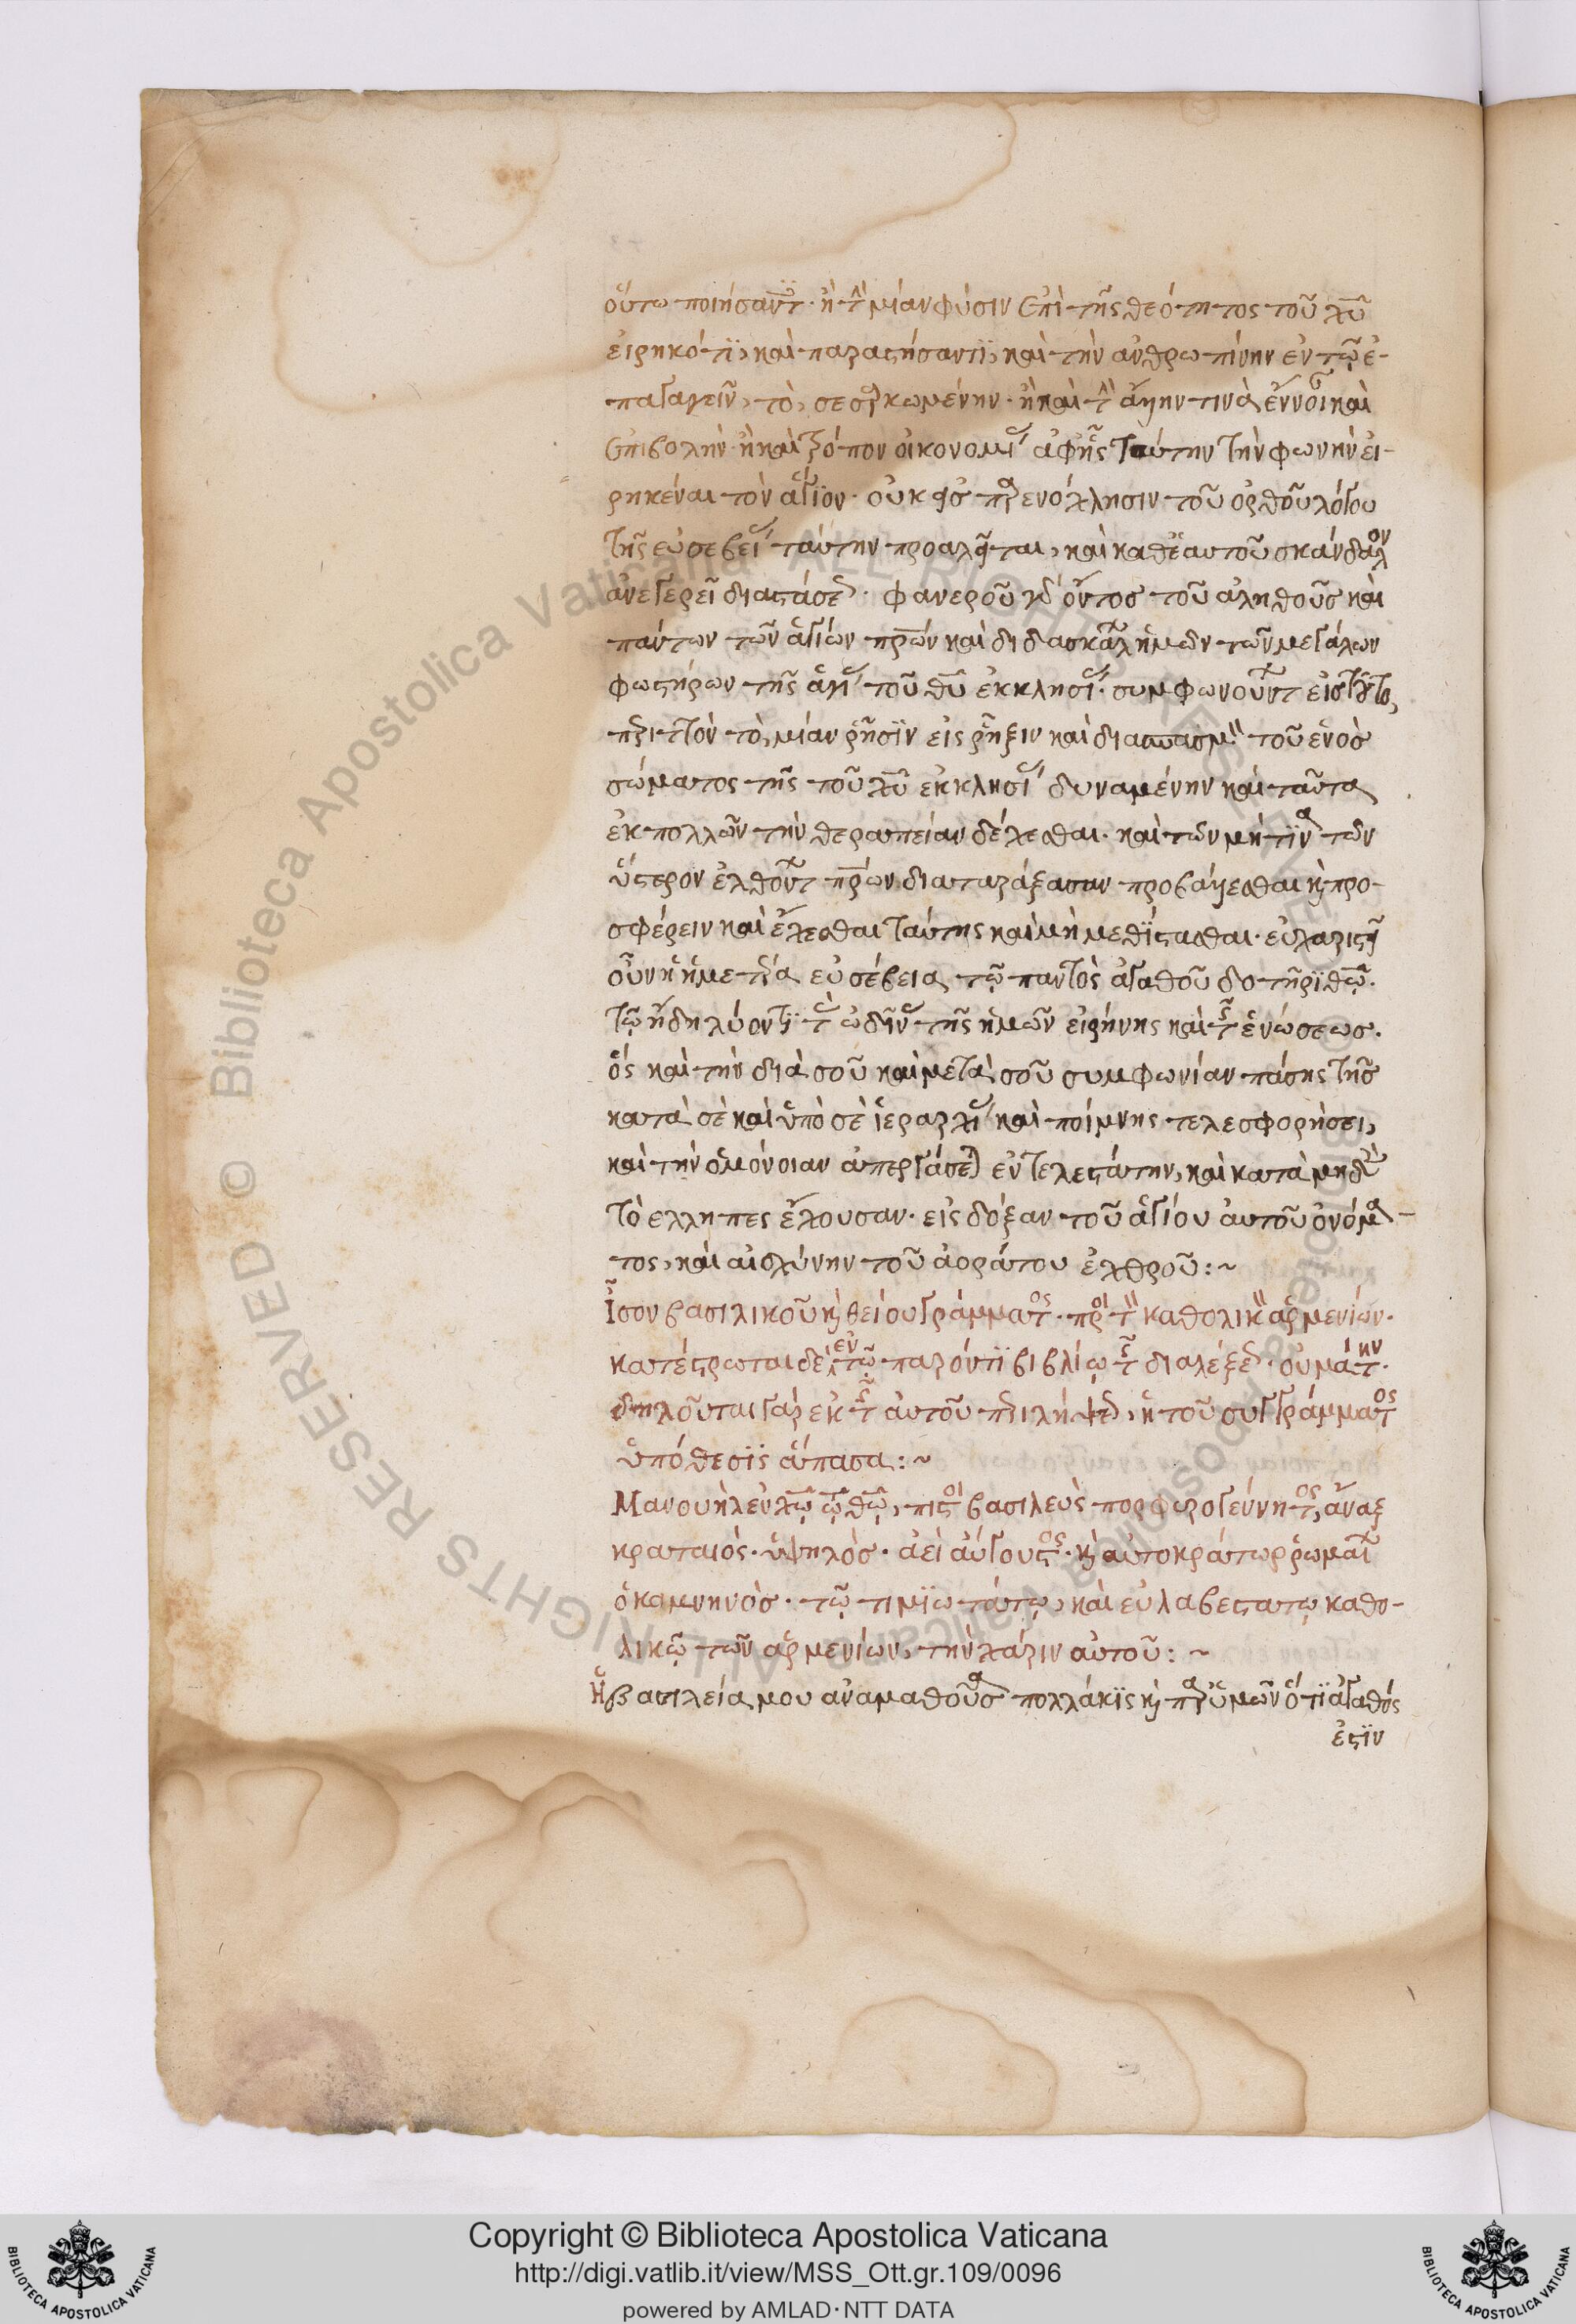 οὕτω ποιήσαντι· ἢ τὴν μίαν φύσιν ἐπὶ τῆς θεότητος τοῦ χῦ
εἰρηκότϊ, καὶ παραστήσαντϊ, καὶ τὴν ἀνθρωπίνην ἐν τῷ ἐ-
παγαγεῖν, τὸ, σεσαρκωμένην· ἢ καὶ τὴν ἄλλην τινὰ ἔννοιαν καὶ
ἐπιβολὴν ἢ καὶ τρόπον οἰκονομίας ἀφ' ἧς ταύτην τὴν φωνὴν εἰ-
ρηκέναι τὸν ἅγϊον· οὐκ παρενόχλησιν τοῦ ὀρθοῦ λόγου
τῆς εὐσεβείας ταύτην προαχθῆται, καὶ καθ' ἑαυτοῦ σκάνδαλον
ἀνεγερεῖ διαστάσεως· φανεροῦ γὰρ ὄντος τοῦ ἀληθοῦς καὶ
πάντων τῶν ἁγίων πρων καὶ διδασκάλων ἡμῶν τῶν μεγάλων
φωστήρων τῆς ἁγίας τοῦ θῦ ἐκκλησίας· συμφωνούντων εἰς τοῦτο,
περιττὸν τὸ, μίαν ῥῆσϊν εἰς ῥῆξιν καὶ διασπασμὸν τοῦ ἑνὸς
σώματος τῆς τοῦ χῦ ἐκκλησίας δυναμένην καὶ ταῦτα
ἐκ πολλῶν τὴν θεραπείαν δέχεσθαι· καὶ τῶν μή τινα τῶν
ὕστερον ἐλθόντων πρων διαταράξασαν προβάλλεσθαι κ προ-
σφέρειν καὶ ἔχεσθαι ταύτης καὶ μὴ μεθΐστασθαι· εὐχαριστεῖ
οὖν ἡ ἡμετέρα εὐσέβεια τῷ παντὸς ἀγαθοῦ δοτῆρϊ θῶ·
τῷ ἤδη λύοντϊ τὰς ὠδῖνας τῆς ἡμῶν εἰρήνης καὶ τῆς ἑνώσεως·
ὃς καὶ τὴν διὰ σοῦ καὶ μετὰ σοῦ συμφωνίαν πάσης τῆς
κατὰ σὲ καὶ ὑπὸ σὲ ἱεραρχίας καὶ ποίμνης τελεσφορήσει,
καὶ τὴν ὁμόνοιαν ἀπεργάσεται ἐντελεστάτην, καὶ κατὰ μηδὲν
τὸ ἐλληπες ἔχουσαν· εἰς δόξαν τοῦ ἁγίου αὐτοῦ ὀνόμα-
τος, καὶ αἰσχύνην τοῦ ἀοράτου ἐχθροῦ:~
Ἶσον βασιλικοῦ κ θείου γράμματος· πρὸς τὸν καθολικὸν ἀρμενίων·
κατέστρωται δὲ ἐν τῷ παρόντϊ βιβλίῳ τῆς διαλέξεως· οὐ μάτην·
δηλοῦται γὰρ ἐκ τῆς αὐτοῦ περιλήψεως, ἡ τοῦ συγγράμματος
ὑπόθεσϊς ἅπασα:~
Μανουὴλ ἐν χῶ τῶ θῶ, πιστὸς βασιλεὺς πορφυρογέννητος, ἄναξ
κραταιὸς· ὑψηλὸς· ἀεὶ αὔγουστος· κ αὐτοκράτωρ ῥωμαίων
ὁ κομνηνὸς· τῷ τιμϊωτάτῳ, καὶ εὐλαβεστατῳ καθο-
λικῷ τῶν ἀρμενίων, τὴν χάριν αὐτοῦ:~
Ἡ βασιλεία μου ἀναμαθοῦσα πολλάκϊς κ παρ' ὑμῶν ὅτϊ ἀγαθός
ἐστϊν
Copyright © Biblioteca Apostolica Vaticana
http://digi.vatlib.it/view/MSS_Ott.gr.109/0096
powered by AMLAD·NTT DATA